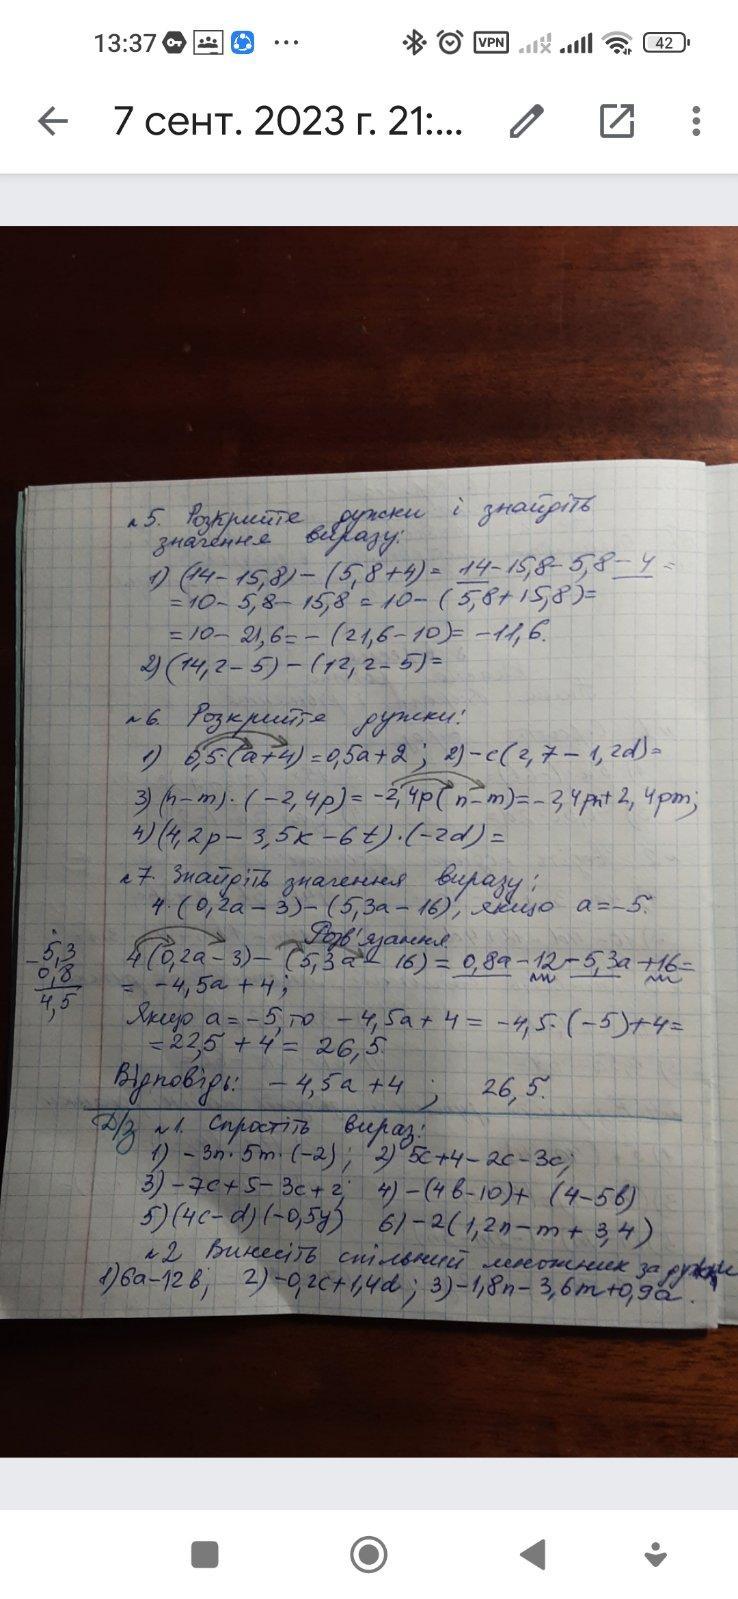 13:37 ... VPN 42
7 сент. 2023 г. 21:...
№5. Розкрийте дужки і знайдіть
значення виразу:
1) (14-15,8)-(5,8+4)= 14-15,8-5,8-4=
=10-5,8-15,8=10-(5,8+15,8)=
=10-21,6=-(21,6-10)=-11,6.
2) (14,2-5)-(12,2-5)=
№6. Розкрийте дужки:
1) 0,5·(a+4)=0,5a+2; 2) -c(2,7-1,2d)=
3) (n-m)·(-2,4p)=-2,4p(n-m)=-2,4pn+2,4pm;
4) (4,2p-3,5k-6t)·(-2d)=
№7. Знайдіть значення виразу:
4·(0,2a-3)-(5,3a-16), якщо a=-5.
Розв'язання
-5,3
0,8
4,5
4(0,2a-3)-(5,3a-16)=0,8a-12-5,3a+16=
=-4,5a+4;
Якщо a=-5, то -4,5a+4=-4,5·(-5)+4=
=22,5+4=26,5
Відповідь: -4,5a+4; 26,5.
Д/з №1. Спростіть вираз:
1) -3n·5m·(-2); 2) 5c+4-2c-3c;
3) -7c+5-3c+2; 4) -(4b-10)+(4-5b)
5) (4c-d)(-0,5y) 6) -2(1,2n-m+3,4)
№2 Винесіть спільний множник за дужки
1) 6a-12b; 2) -0,2c+1,4d; 3) -1,8n-3,6m+0,9a.